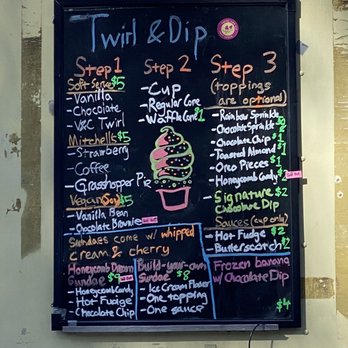 Twirl & Dip
Step 1
Soft Serve $5
- Vanilla
- Chocolate
- V&C Twirl
Mitchell's $5
- Strawberry
- Coffee
- Grasshopper Pie
Vegan Soy $5
- Vanilla Bean
- Chocolate Brownie
Step 2
- Cup
- Regular Cone
- Waffle Cone $1
Step 3
(toppings are optional)
- Rainbow Sprinkle
- Chocolate Sprinkle
- Chocolate Chip
- Toasted Almond $1
- Oreo Pieces $1
- Honeycomb Candy
- Signature $2
Chocolate Dip
Sauces (cup only)
- Hot Fudge $2
- Butterscotch $2
Sundaes come w/ whipped
cream & cherry
Honeycomb Dream
Sundae $9
- Honeycomb Candy
- Hot Fudge
- Chocolate Chip
Build-your-own
Sundae $8
- Ice Cream Flavor
- One topping
- One sauce
Frozen banana
w/ Chocolate Dip
$4